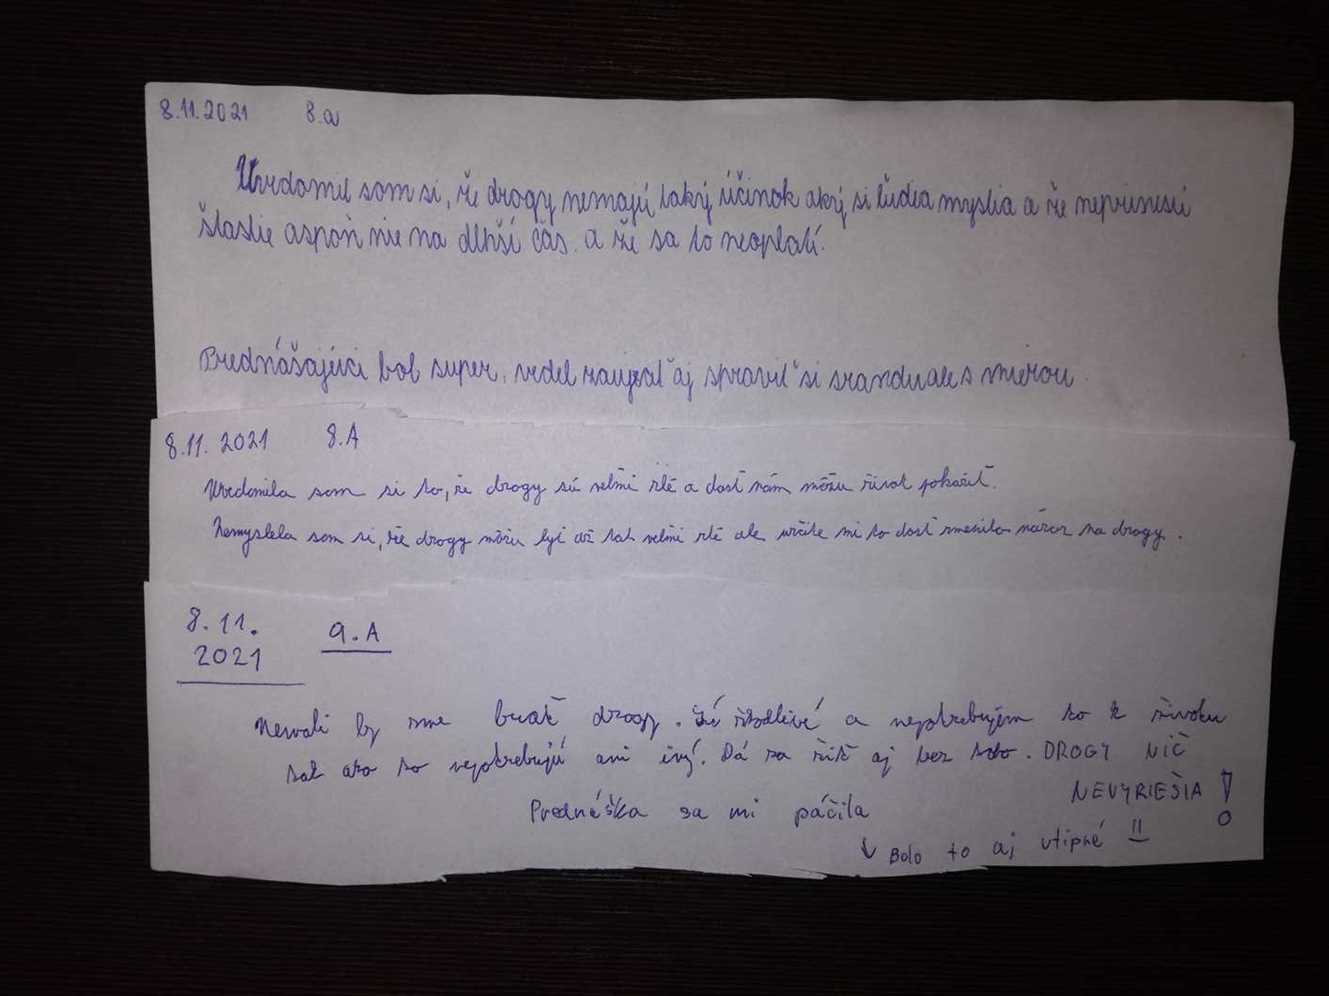 8.11.2021 8.a
Uvedomil som si, že drogy nemajú taký účinok aký si ľudia myslia a že neprinesú
šťastie aspoň nie na dlhší čas. a že sa to neoplatí.
Prednášajúci bol super, vedel zaujať aj spraviť si srandu ale s mierou
8.11. 2021 8.A
Uvedomila som si to, že drogy sú velmi zlé a dosť nám môžu život pokaziť.
Nemyslela som si, že drogy môžu byť až tak velmi zlé ale určite mi to dosť zmenilo názor na drogy.
8.11. 9.A
2021
Nemali by sme brať drogy. Sú škodlivé a nepotrebujem to k životu
tak ako to nepotrebujú ani iný. Dá sa žiť aj bez toho. DROGY NIČ
NEVYRIEŠIA !
Prednáška sa mi páčila
↓ Bolo to aj vtipné